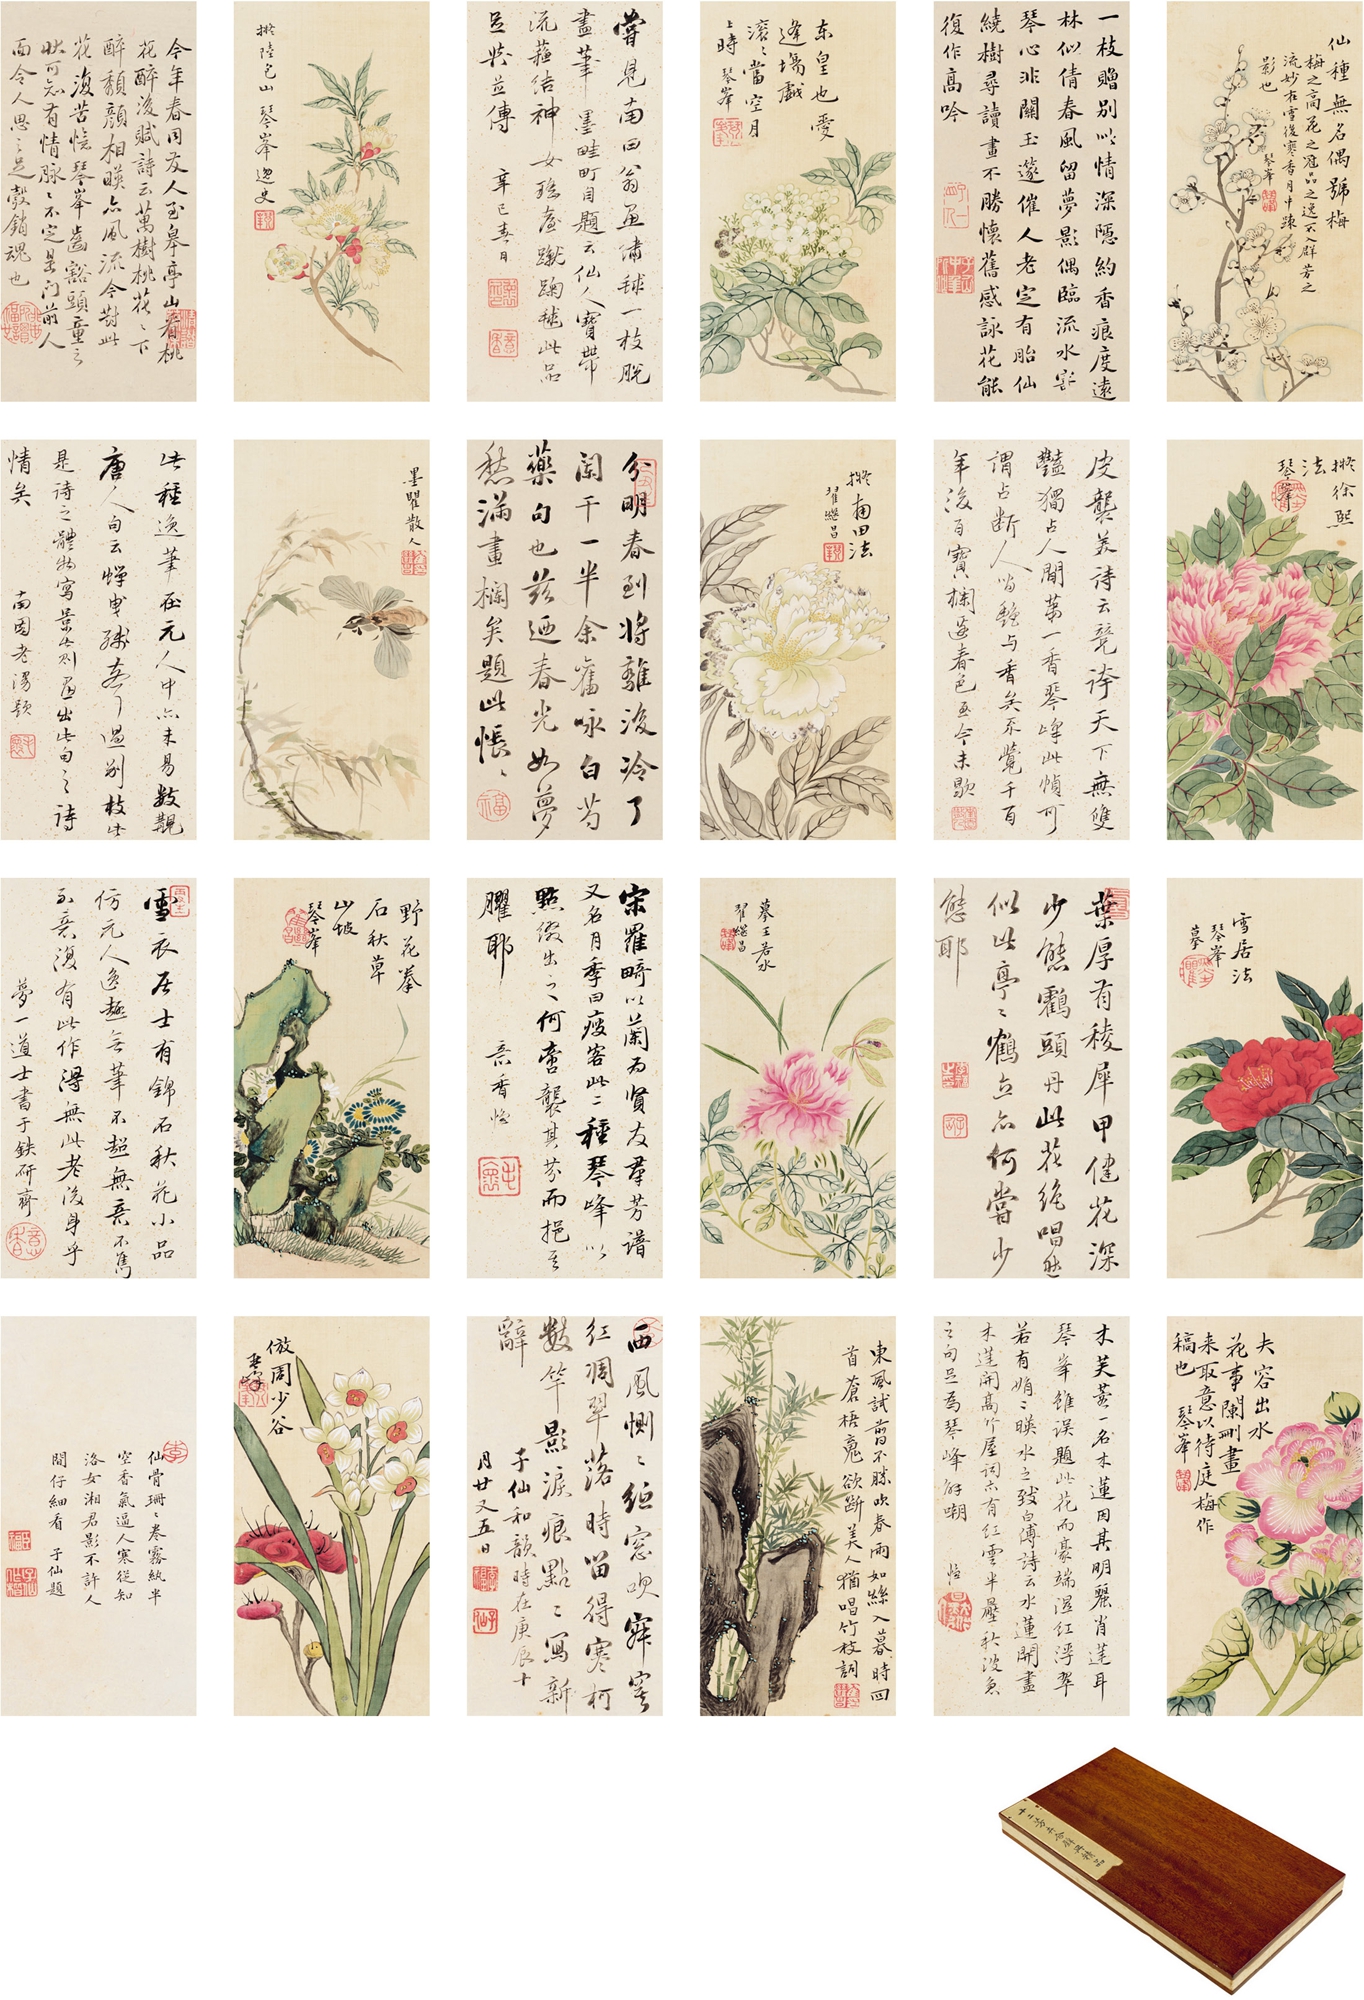 仙種無名偶號梅
梅之高花之冠品之逸不入群芳之
流妙在雪後寒香月中疎
影也
琴峯
一枝贈別以情深隱約香痕度遠
林似倩春風留夢影偶臨流水寄
琴心非關玉邃催人老定有胎仙
繞樹尋讀畫不勝懷舊感詠花能
復作高吟
东皇也愛
逢場戲
滚〻當空月
上時 琴峯
嘗見南田翁画繡毬一枝脫
盡筆墨畦町自題云仙人寶帶
流蘇結神女瑤臺蹴踘毬此品
足与並傳 辛巳春日
擬陸包山 琴峯逸史
今年春同友人至皋亭山看桃
花醉後賦詩云萬樹桃花〻下
醉頹顏相暎亦風流今對此
花復苦憶琴峯齒豁頭童之
狀可知有情脉〻不定是门前人
面令人思之足殼銷魂也
擬徐熙
法
琴峯
皮襲美詩云竞誇天下無雙
豔獨占人間第一香琴峰此幀可
謂占断人間艷与香矣不覺千百
年後百寶欄邊春色至今未歇
擬南田法
翟繼昌
分明春到将離後冷了
闌干一半余舊咏白芍
藥句也兹廼春光如夢
愁滿畫欄矣題此悵〻
墨瞿散人
此種逸筆在元人中亦未易數覯
唐人句云蟬曳殘聲過别枝此
是詩之體物寫景此则画出此句之詩
情矣 南園老漫題
雪居法
琴峯
摹
葉厚有稜犀甲健花深
少態鶴頭丹此花絶唱然
似此亭〻鶴立亦何嘗少
態耶
摹王若水
翟繼昌
宋羅畸以蘭为賢友羣芳譜
又名月季曰瘦客此二種琴峰以
點缀出之何啻襲其芬而挹其
臞耶 意香恺
野花拳
石秋草
山坡
琴峯
雪衣居士有錦石秋花小品
仿元人逸趣無筆不超無意不雋
不意復有此作得無此老後身乎
夢一道士書于鉄研齋
夫容出水
花事闌刪畫
来取意以待庭梅作
稿也 琴峯
木芙蓉一名木蓮因其明麗肖蓮耳
琴峯雖误題此花而豪端湿红浮翠
若有娟〻暎水之致白傅詩云水蓮開盡
木蓮開高竹屋詞亦有红雲半壓秋波急
之句足為琴峰解嘲 恺
東風試剪不勝吹春雨如絲入暮時回
首蒼梧魂欲断美人猶唱竹枝詞
西風恻〻纸窓吹寂寞
红凋翠落時留得寒柯
數竿影淚痕點〻寫新
辭 子仙和韻時在庚辰十
月廿又五日
倣周少谷
琴峰
仙骨珊〻卷霧紈半
空香氣逼人寒從知
洛女湘君影不許人
間仔細看 子仙題